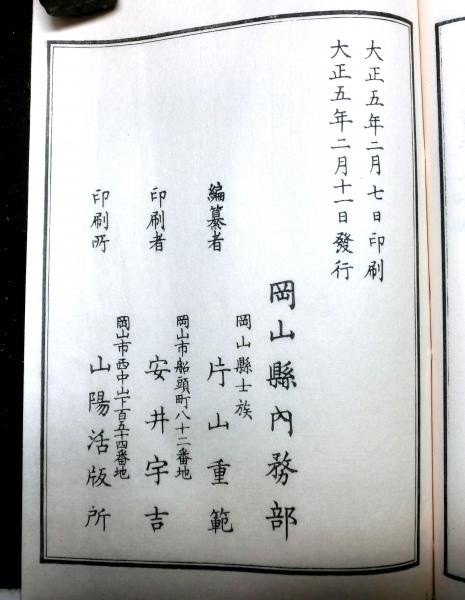 大正五年二月七日印刷
大正五年二月十一日發行
岡山縣內務部
岡山縣士族
編纂者 片山重範
岡山市船頭町八十二番地
印刷者 安井宇吉
岡山市西中山下百五十四番地
印刷所 山陽活版所